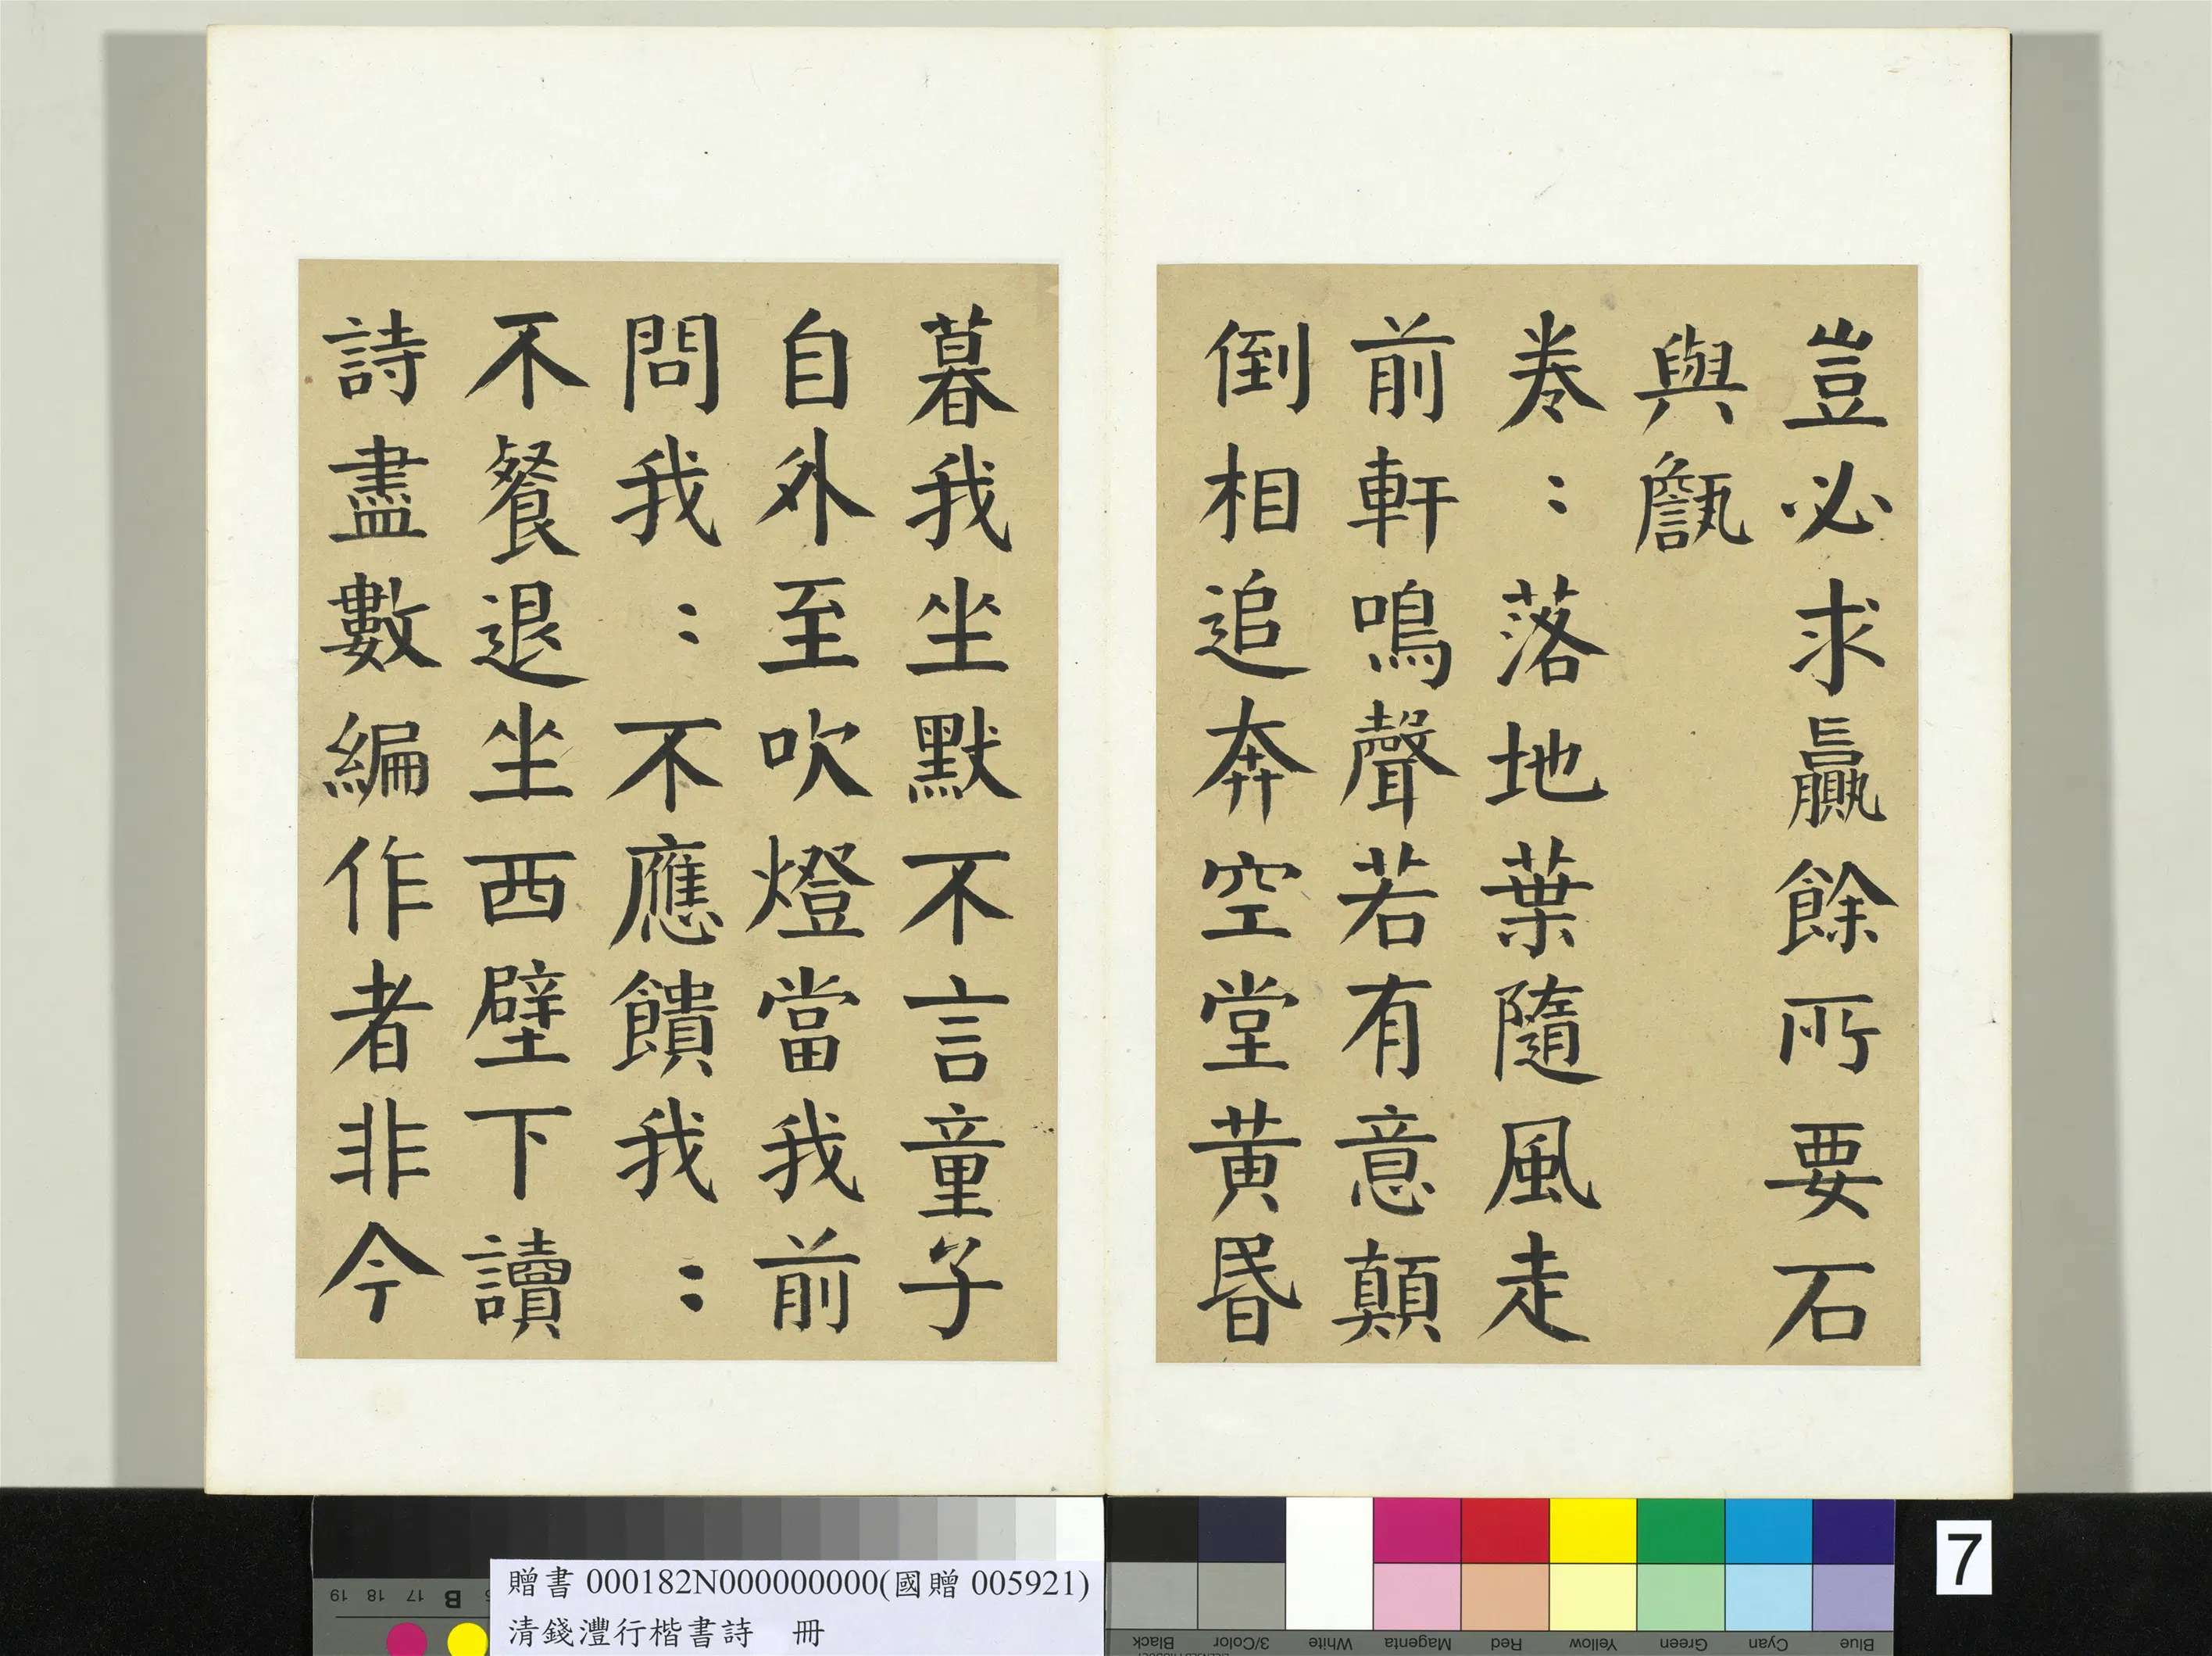 豈必求贏餘所要石
與甔
卷：落地葉隨風走
前軒鳴聲若有意顛
倒相追奔空堂黃昬
暮我坐默不言童子
自外至吹燈當我前
問我：不應饋我：
不餐退坐西壁下讀
詩盡數編作者非今
贈書 000182N000000000(國贈 005921)
清錢灃行楷書詩 冊
7
19 18 17 B
Black
3/Color
White
Magenta
Red
Yellow
Green
Cyan
Blue